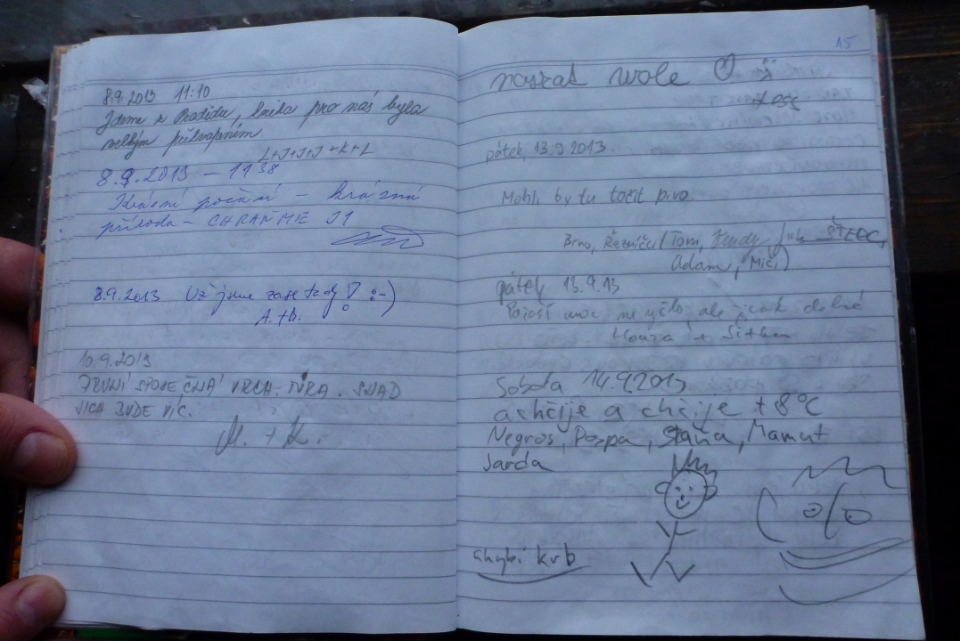 8.9.2013 11:10
Jdeme z Hradidu, kniha pro nás byla
velkým překvapením
L+J+J+J+K+L
8.9.2013 – 1938
Ideální počasí – krásná
příroda – CHRAŇME JI
8.9.2013 Už jsme zase tady! :-)
A.+B.
10.9.2013
PRVNÍ SPOLEČNÁ VRCH. TÚRA. SNAD
JICH BUDE VÍC.
M. + K.
15
nasrat vole
pátek, 13.9.2013
Mohli by tu točit pivo
Brno, Řezníčci (Tom,
Adam, Mici)
pátek 13.9.13
Počasí moc nevyšlo ale jinak dobré
Honza +
Sobota 14.9.2013
a chčije a chčije +8°C
Negros, Pozpa, Staňa, Mamut
Jarda
chybí krb